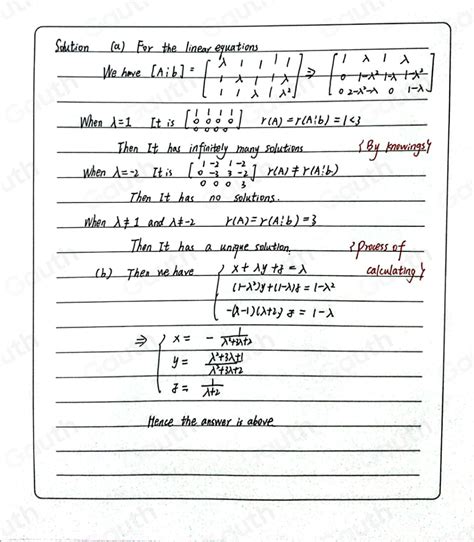 Solution (a) For the linear equations
We have [A⋮b] = [λ 1 1 1; 1 λ 1 λ; 1 1 λ λ²] ⇒ [1 λ 1 λ; 0 1-λ² 1-λ 1-λ²; 0 2-λ²-λ 0 1-λ]
When λ=1 It is [1 1 1 1; 0 0 0 0; 0 0 0 0] r(A) = r(A⋮b) = 1<3
Then It has infinitely many solutions {By knowings}
When λ=-2 It is [1 -2 1 -2; 0 -3 3 -2; 0 0 0 3] r(A) ≠ r(A⋮b)
Then It has no solutions.
When λ≠1 and λ≠-2 r(A)=r(A⋮b)=3
Then It has a unique solution. {Process of
calculating}
(b) Then we have { x + λy + z = λ
(1-λ²)y+(1-λ)z = 1-λ²
-(λ-1)(λ+2) z = 1-λ
⇒ { x = - 1/(λ²+3λ+2)
y = (λ²+3λ+1)/(λ²+3λ+2)
z = 1/(λ+2)
Hence the answer is above
Gauth